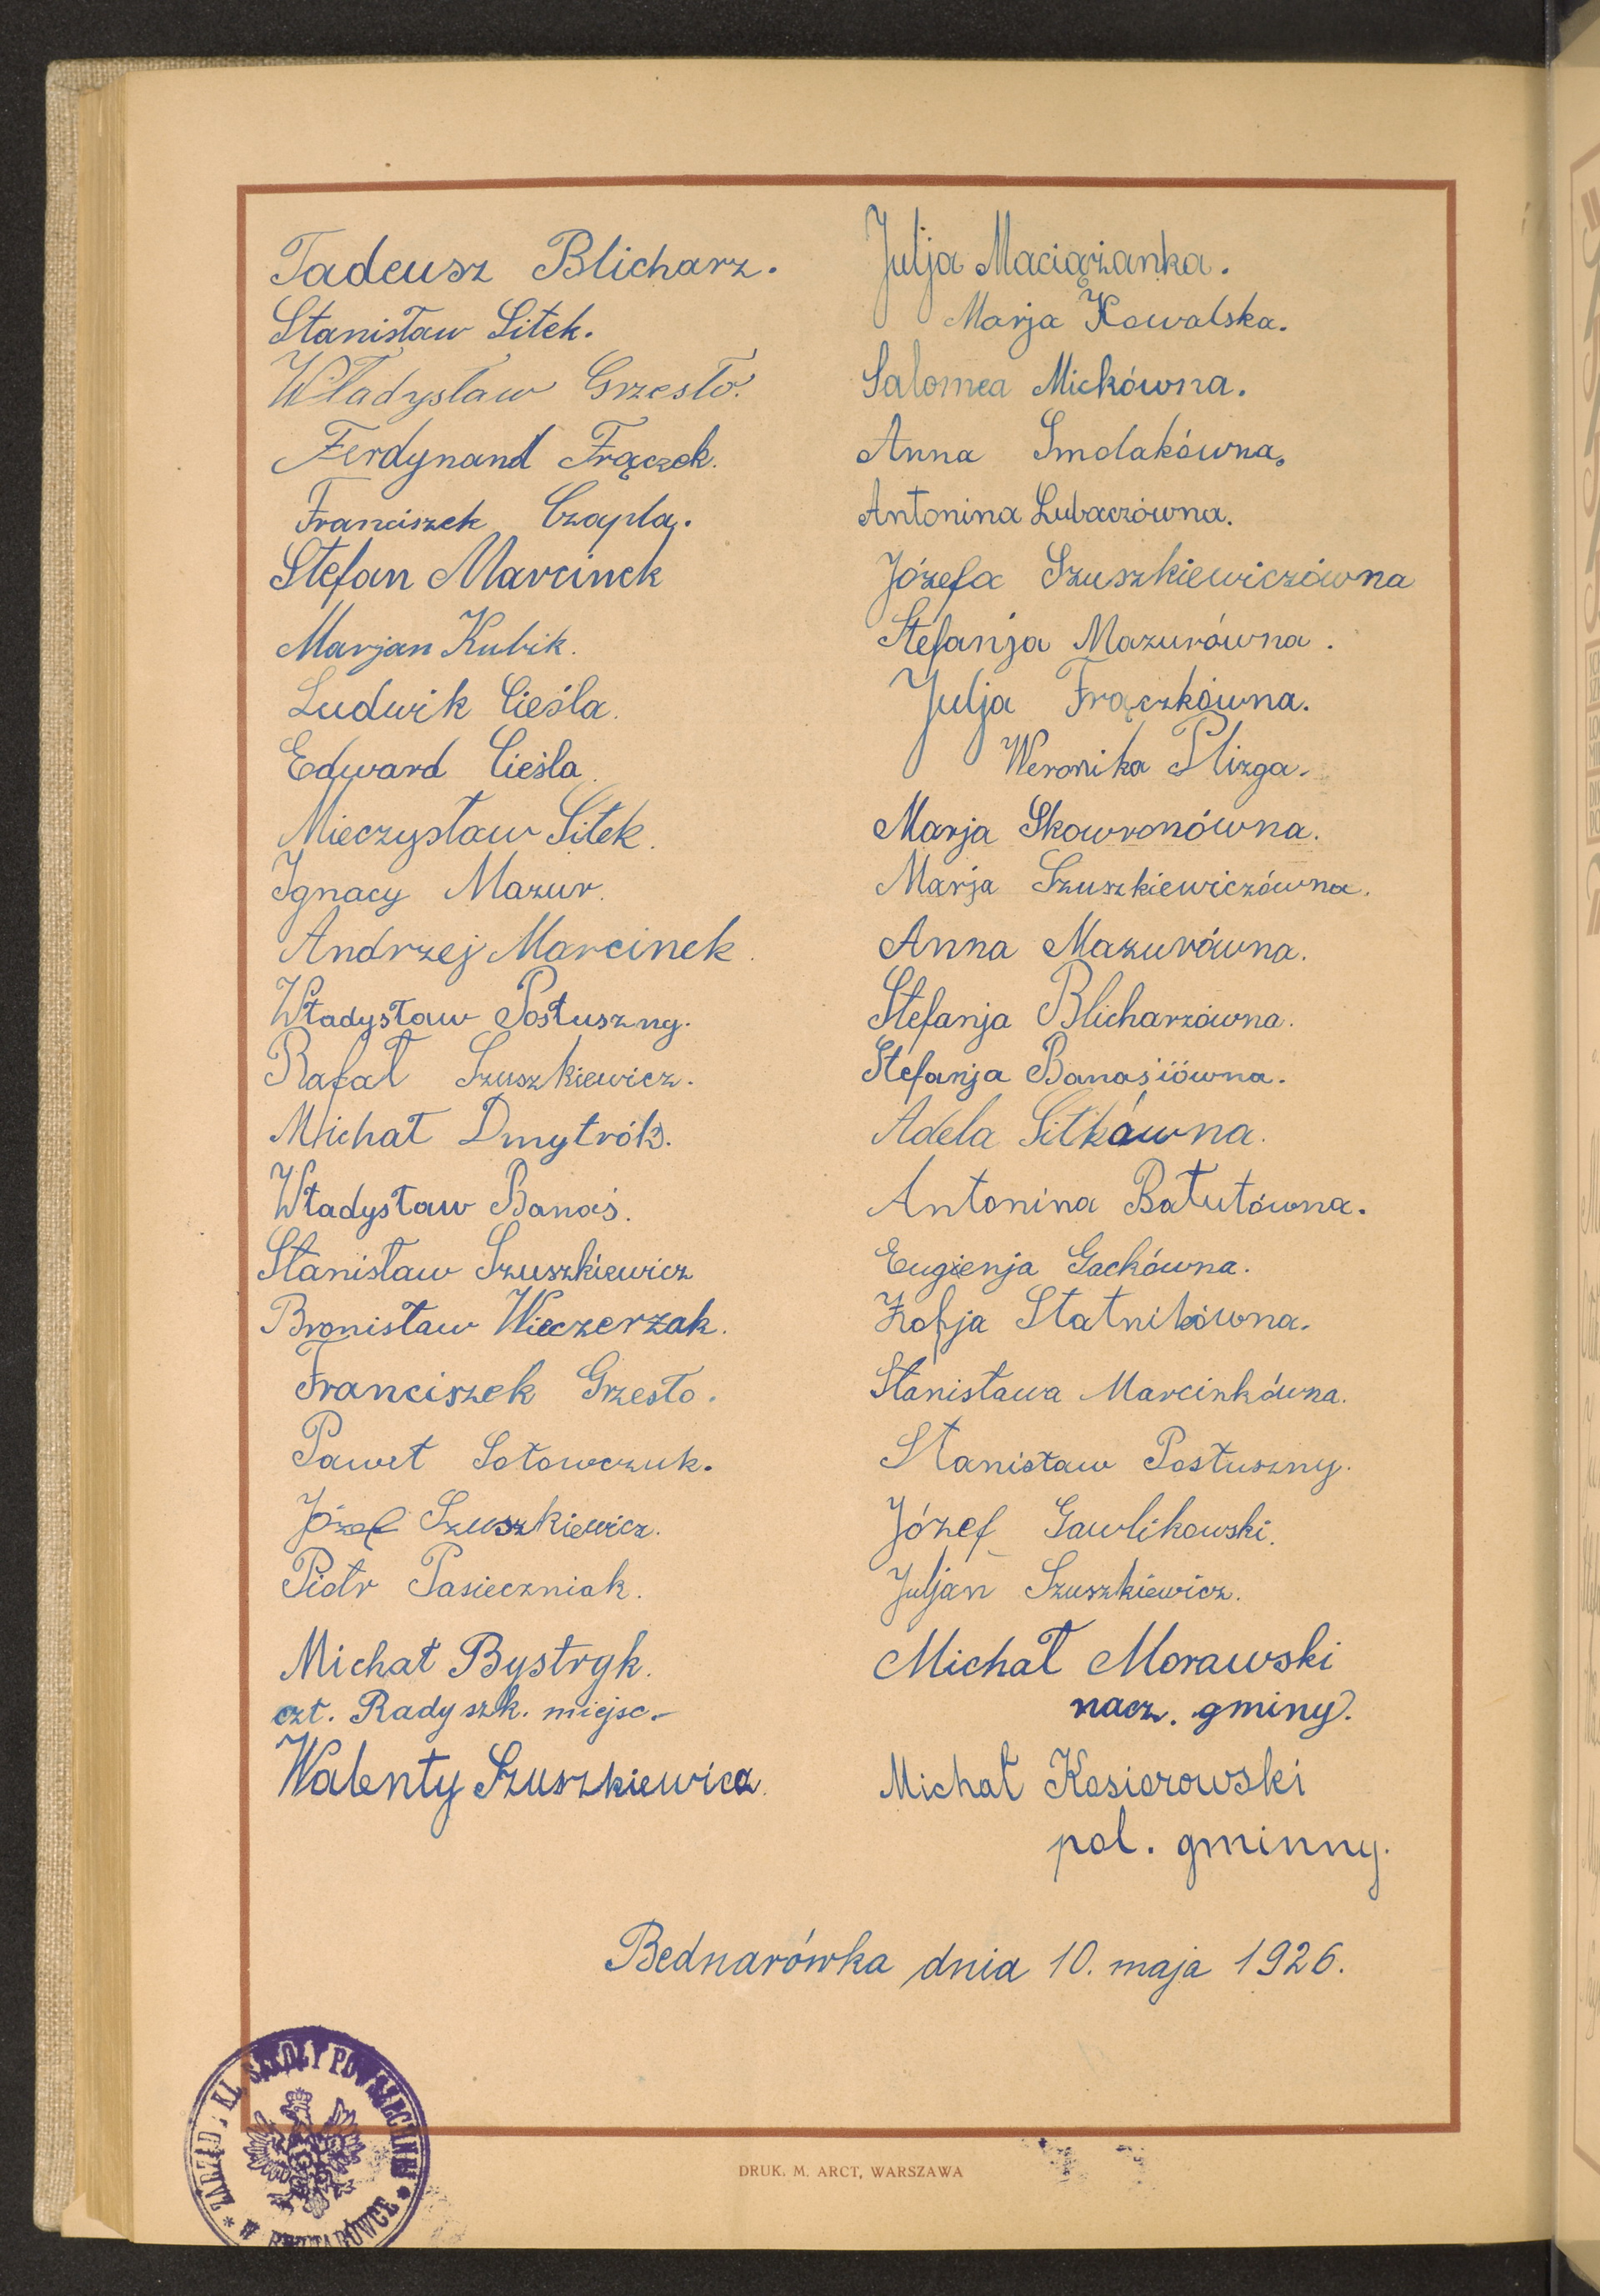 Tadeusz Blicharz.
Stanisław Sitek.
Władysław Grzesło.
Ferdynand Frączek.
Franciszek Czapla.
Stefan Marcinek
Marjan Kubik.
Ludwik Cieśla.
Edward Cieśla.
Mieczysław Sitek.
Ignacy Mazur.
Andrzej Marcinek.
Władysław Posłuszny.
Rafał Szuszkiewicz.
Michał Dmytrók.
Władysław Banaś.
Stanisław Szuszkiewicz
Bronisław Wieczerzak.
Franciszek Grzesło.
Paweł Sołowczuk.
Józef Szuszkiewicz.
Piotr Pasieczniak.
Michał Bystryk.
czł. Rady szk. miejsc.
Walenty Szuszkiewicz.
Julja Maciążanka.
Marja Kowalska.
Salomea Mickówna.
Anna Smolakówna.
Antonina Lubaczówna.
Józefa Szuszkiewiczówna
Stefanja Mazurówna.
Julja Frączkówna.
Weronika Plizga.
Marja Skowronówna.
Marja Szuszkiewiczówna.
Anna Mazurówna.
Stefanja Blicharzówna.
Stefanja Banasiówna.
Adela Sitkówna.
Antonina Bałutówna.
Eugienja Gackówna.
Zofja Statnikówna.
Stanisława Marcinkówna.
Stanisław Posłuszny.
Józef Gawlikowski.
Juljan Szuszkiewicz.
Michał Morawski
nacz. gminy.
Michał Kosiorowski
pol. gminny.
Bednarówka dnia 10. maja 1926.
ZARZĄD KL. SZKOŁY POWSZECHNEJ
DRUK. M. ARCT, WARSZAWA